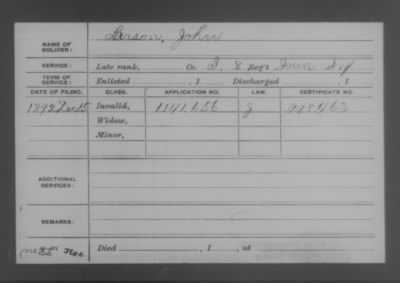 NAME OF SOLDIER: Larson, John
SERVICE: Late rank, Co. I, 8 Reg't Iowa Inf
TERM OF SERVICE: Enlisted , 1 Discharged , 1
DATE OF FILING. CLASS. APPLICATION NO. LAW. CERTIFICATE NO.
1892 Dec 15 Invalid, 1141.656 J 948463
Widow,
Minor,
ADDITIONAL SERVICES:
REMARKS:
Died , 1 , at